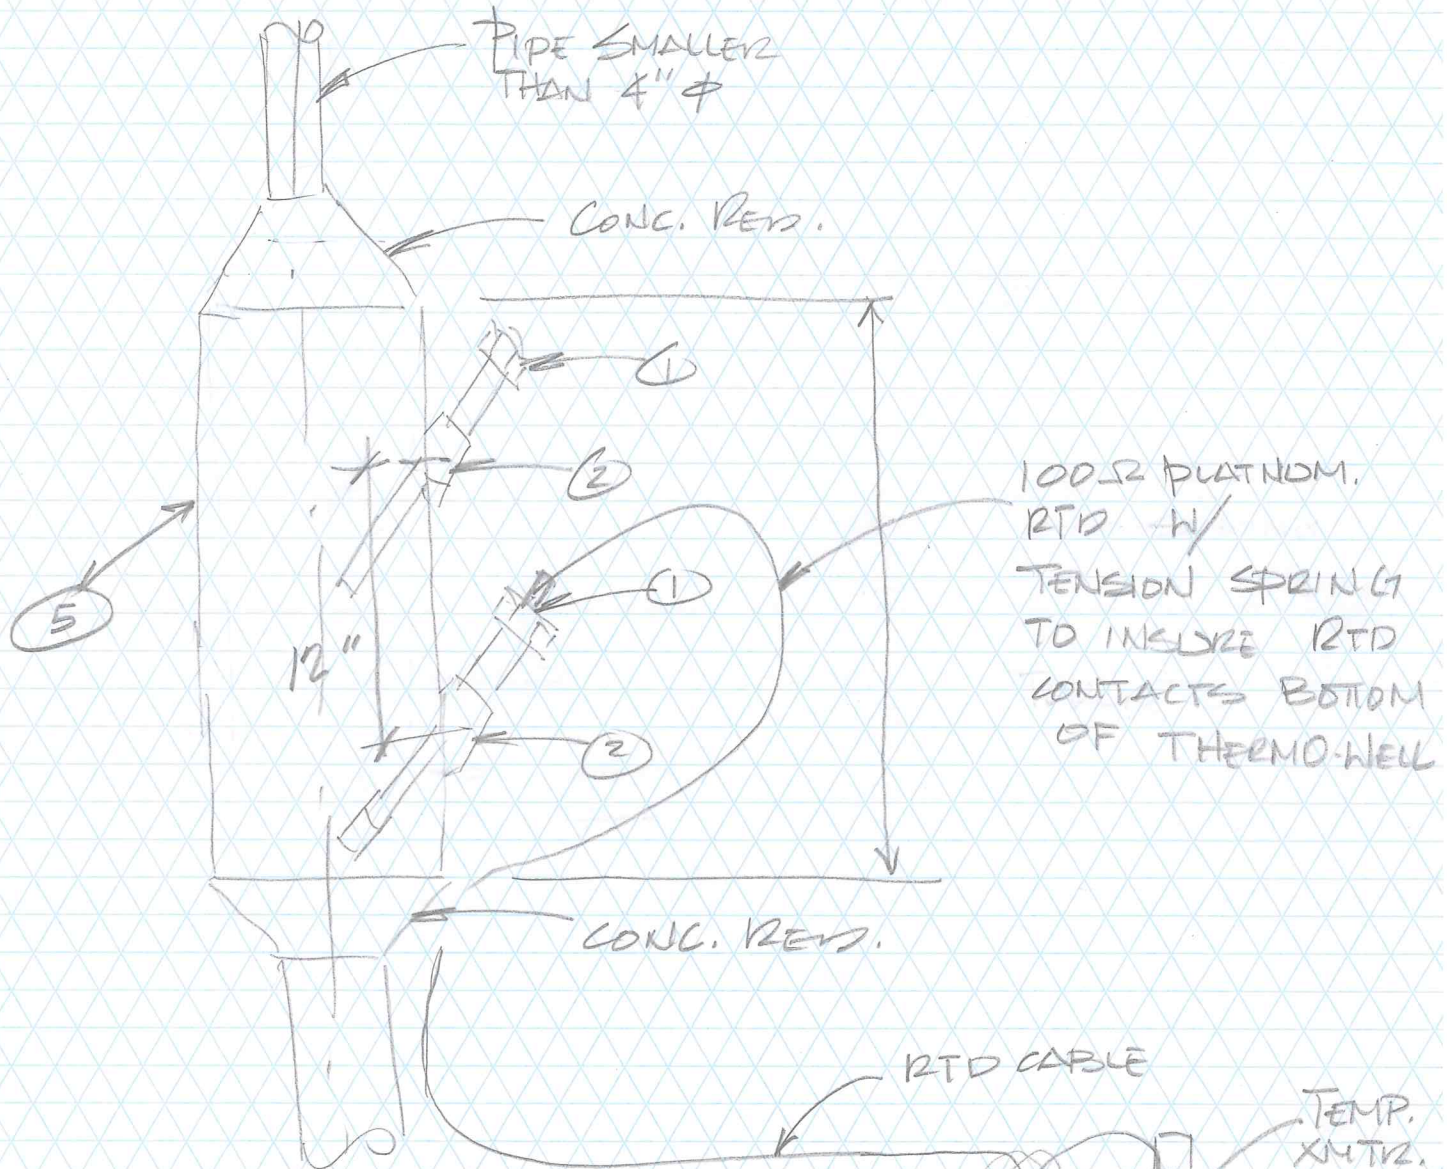 PIPE SMALLER
THAN 4" ⌀
CONC. RED.
1
2
100Ω PLATNUM.
RTD W/
TENSION SPRING
TO INSURE RTD
CONTACTS BOTTOM
OF THERMO-WELL
1
5
12"
2
CONC. RED.
RTD CABLE
TEMP.
XMTR.